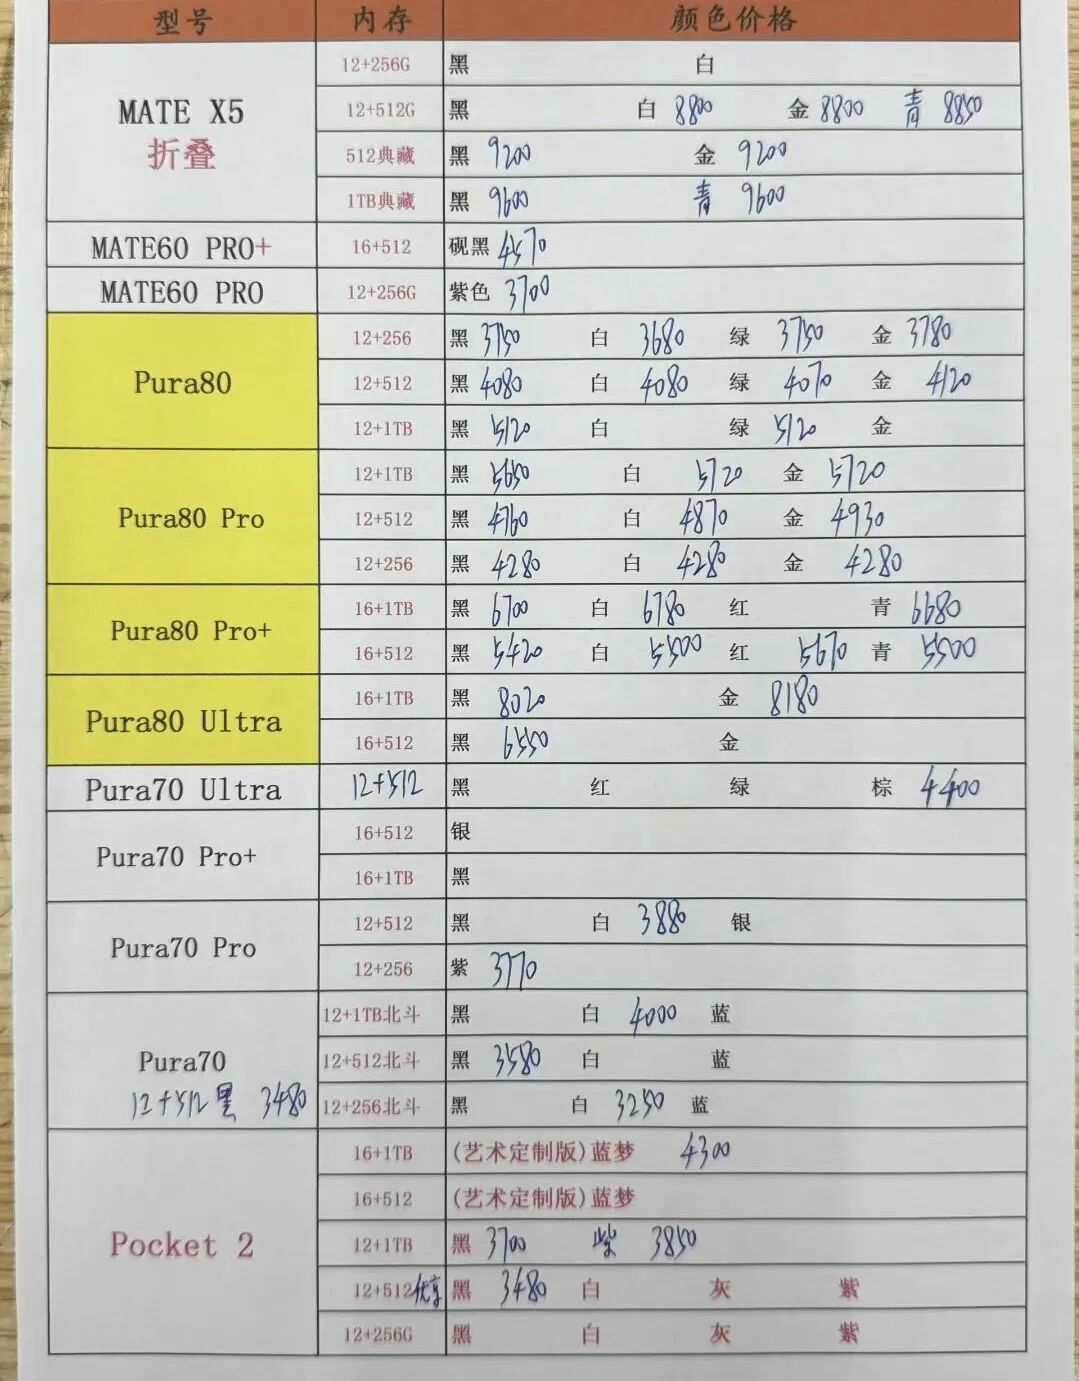 型号 内存 颜色价格
12+256G 黑 白
MATE X5 12+512G 黑 白 8800 金 8800 青 8850
折叠 512典藏 黑 9200 金 9200
1TB典藏 黑 9600 青 9600
MATE60 PRO+ 16+512 砚黑 4570
MATE60 PRO 12+256G 紫色 3700
12+256 黑 3750 白 3680 绿 3750 金 3780
Pura80 12+512 黑 4080 白 4080 绿 4070 金 4120
12+1TB 黑 5120 白 绿 5120 金
12+1TB 黑 5650 白 5720 金 5720
Pura80 Pro 12+512 黑 4760 白 4870 金 4930
12+256 黑 4280 白 4280 金 4280
16+1TB 黑 6700 白 6780 红 青 6680
Pura80 Pro+ 16+512 黑 5420 白 5500 红 5670 青 5500
16+1TB 黑 8020 金 8180
Pura80 Ultra 16+512 黑 6550 金
Pura70 Ultra 12+512 黑 红 绿 棕 4400
16+512 银
Pura70 Pro+ 16+1TB 黑
12+512 黑 白 3880 银
Pura70 Pro 12+256 紫 3770
12+1TB北斗 黑 白 4000 蓝
Pura70 12+512北斗 黑 3580 白 蓝
12+512 黑 3480 12+256北斗 黑 白 3250 蓝
16+1TB (艺术定制版)蓝梦 4300
16+512 (艺术定制版)蓝梦
Pocket 2 12+1TB 黑 3700 紫 3850
12+512优享 黑 3480 白 灰 紫
12+256G 黑 白 灰 紫